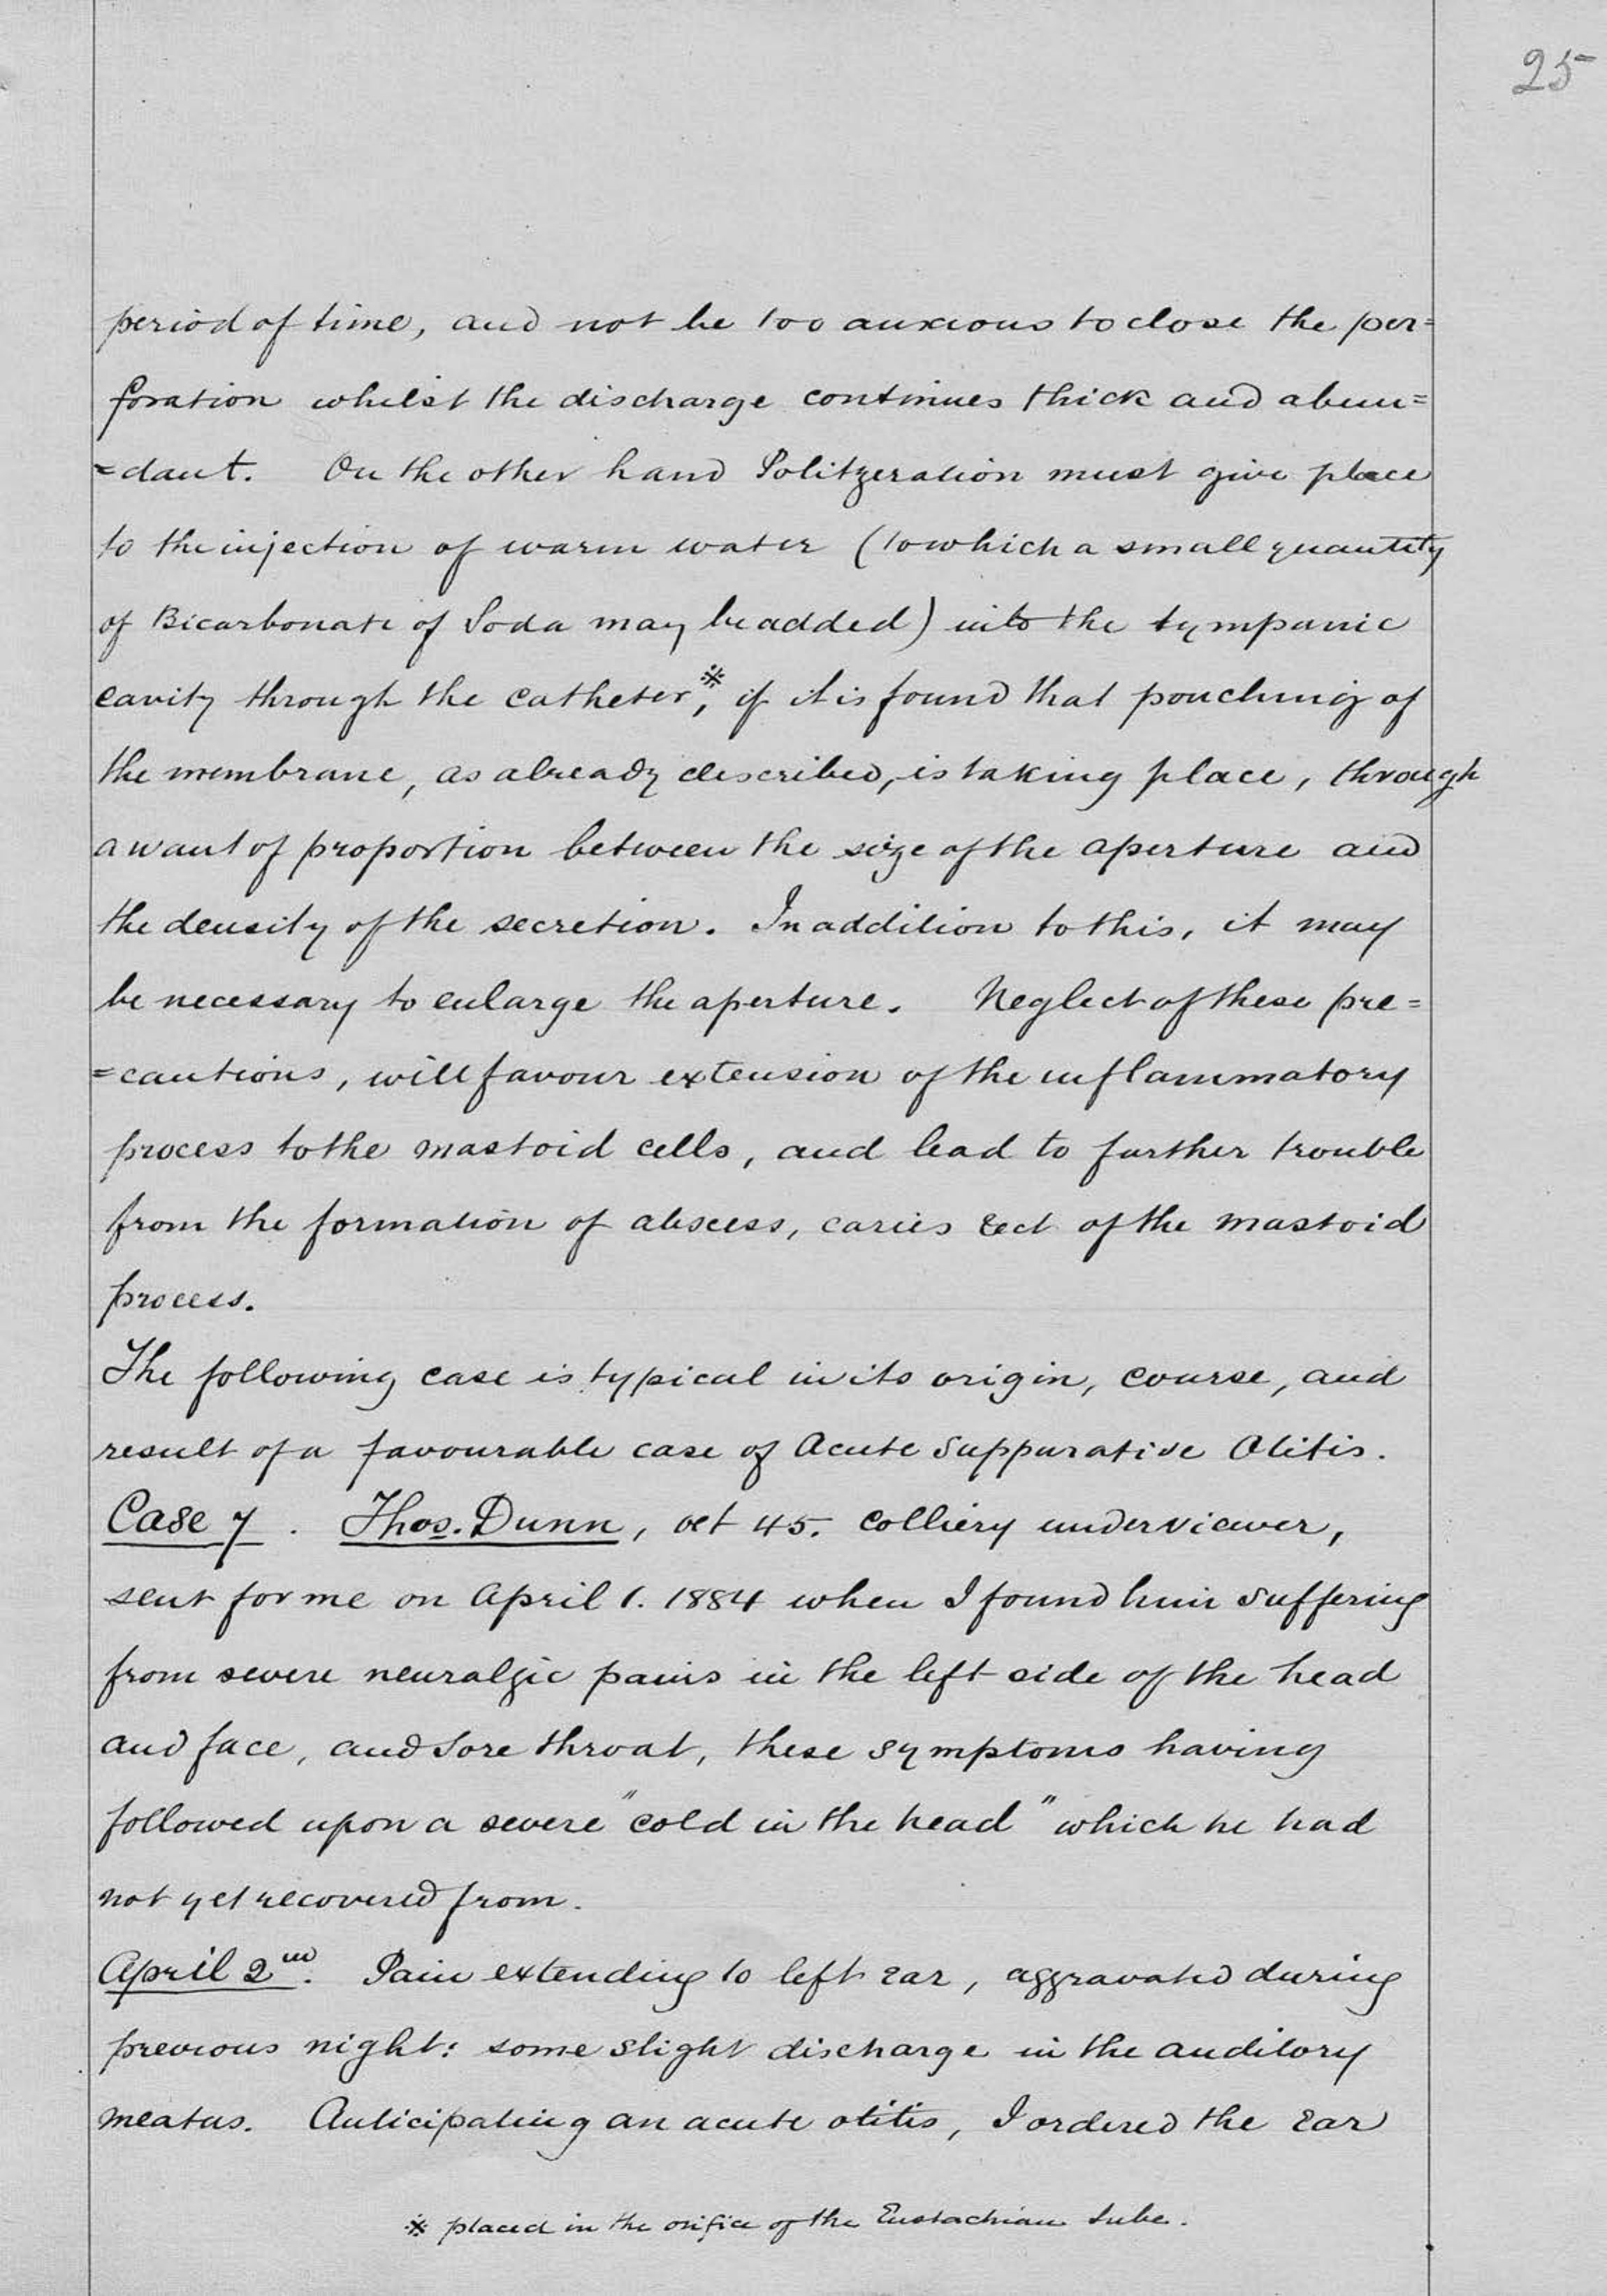 25
period of time, and not be too anxious to close the per=
foration whilst the discharge continues thick and abun=
=dant. On the other hand Politzeration must give place
to the injection of warm water (to which a small quantity
of Bicarbonate of Soda may be added) into the tympanic
cavity through the catheter,※ if it is found that pouching of
the membrane, as already described, is taking place, through
a want of proportion between the size of the aperture and
the density of the secretion. In addition to this, it may
be necessary to enlarge the aperture. Neglect of these pre=
=cautions, will favour extension of the inflammatory
process to the mastoid cells, and lead to further trouble
from the formation of abscess, caries &ct of the mastoid
process.
The following case is typical in its origin, course, and
result of a favourable case of Acute Suppurative Otitis.
Case 7. Thos. Dunn, æt 45. Colliery underviewer,
sent for me on April 1. 1884 when I found him suffering
from severe neuralgic pains in the left side of the head
and face, and sore throat, these symptoms having
followed upon a severe "cold in the head" which he had
not yet recovered from.
April 2nd. Pain extending to left ear, aggravated during
previous night: some slight discharge in the auditory
meatus. Anticipating an acute otitis, I ordered the ear
※ placed in the orifice of the Eustachian tube.